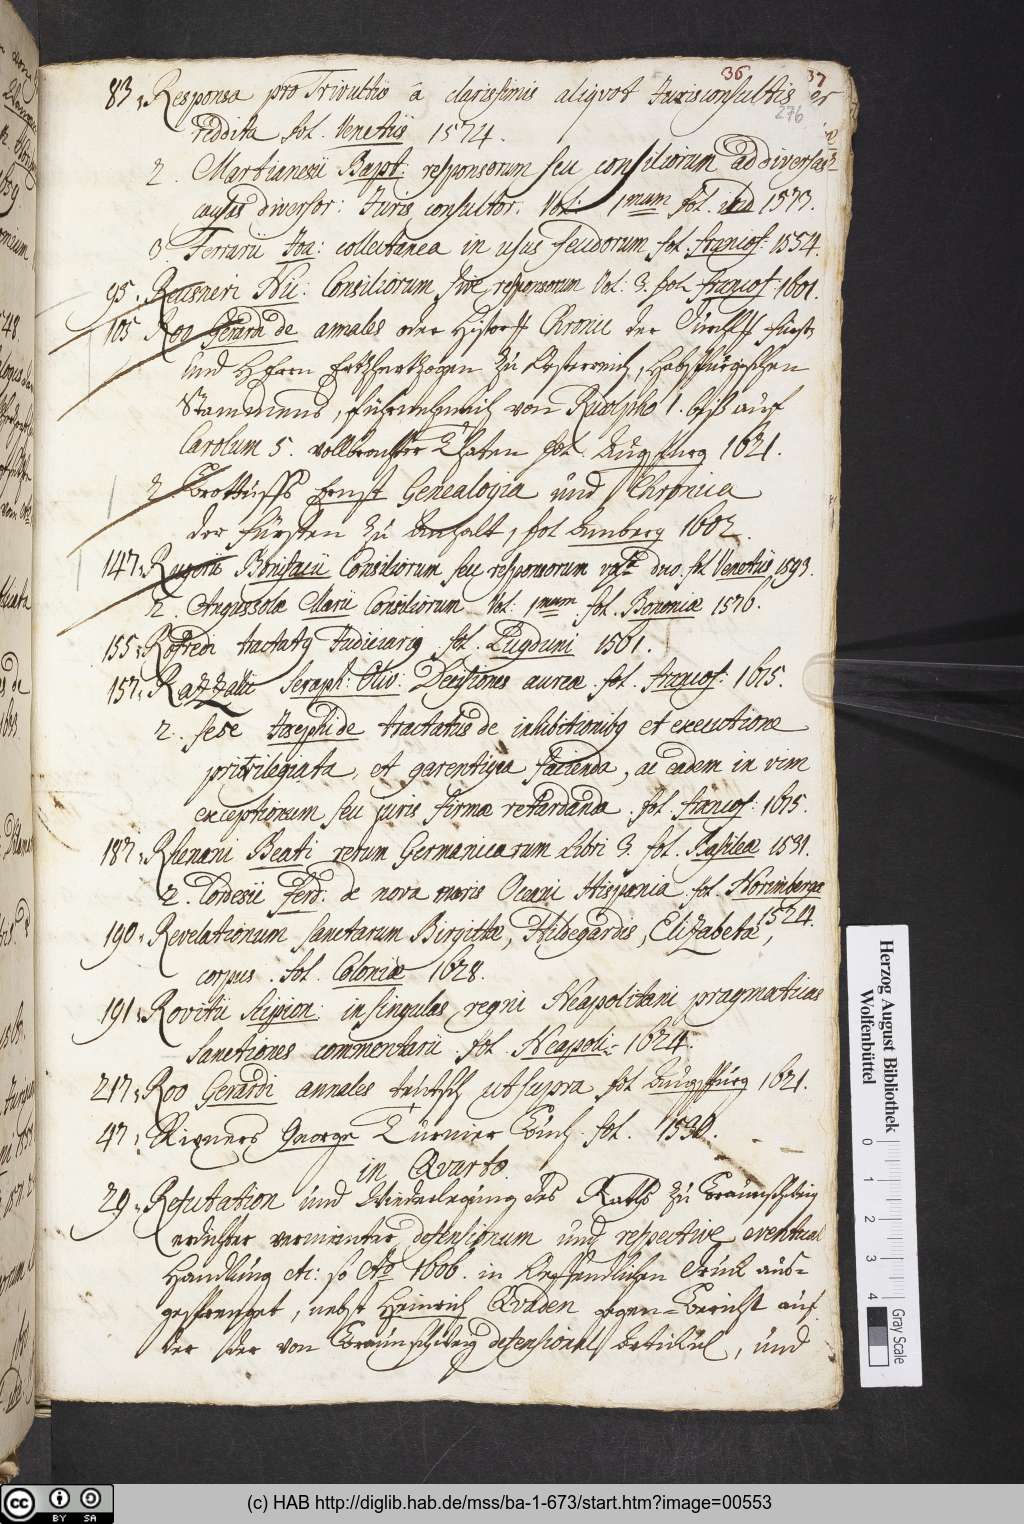 36 37
276
83. Responsa pro Trivultiis a clarissimis aliqvot Jurisconsultis
reddita fol. Venetiis 1574.
2. Martianesii Bapt: responsorum seu consiliorum ad diversas
causas diversor: Juris consultor. Vol: 1mum fol. ibid 1573.
3. Ferrarii Joa: collectanea in usus feudorum fol. francof: 1554.
95. Reusneri Nic: Consiliorum sive responsorum Vol: 3. fol. francof 1601.
105 Roo Gerard de annales oder Histor Chronic der Fürst
und Herrn Ertzhertzogen zu Oesterreich, Habspurgischen
Stammens, fürnehmlich von Rudolpho 1. biß auf
Carolum 5. vollbrachter Thaten fol. Augspurg 1621.
2 Brottuffs Ernst Genealogia und Chronica
der fürsten zu Anhalt, fol Amberg 1602.
147. Rugerii Bonifacii Consiliorum seu responsorum duo. fol Venetiis 1593.
2. Angussolæ Marii Consiliorum Vol: 1mum fol. Bononiæ 1576.
155. Rofredi tractatq Judiciariq fol. Lugduni 1561.
157. Razzalii Seraph: Oliv: Decisiones aureæ fol. francof: 1615.
2. Sese Josephi de tractatus de inhibitionibq et executione
privilegiata, et garentigia facienda, ac eadem in vim
exceptionum seu juris firmæ retardanda fol. francof: 1615.
187. Rhenani Beati rerum Germanicarum Libri 3. fol. Basileæ 1531.
2. Cordesii Ferd. de nova maris Oceani Hispania fol. Norimbergæ
1524.
190. Revelationum Sanctarum Birgittæ, Hildegardis, Elizabetæ,
corpus. fol. Coloniæ 1628.
191. Rovitii Scipion: in singulas regni Neapolitani pragmaticas
Sanctiones commentarii fol. Neapoli 1624.
217. Roo Gerardi annales teutsch ut supra fol. Augspurg 1621.
47. Rixners George Turnier Buch. fol. 1530.
in Qvarto.
29. Refutation und Wiederlegung des Raths zu Braunschweig
erdichter vermeinter defensionum und respective eventual
Handlung etc: so Ao 1606. in Oeffendlichen Druck aus=
gesprenget, nebst Heinrich Qvaden gegen=Bericht auf
der von Braunschweig defensional Articul, und
Herzog August Bibliothek
Wolfenbüttel
0 1 2 3 4
Gray Scale
(c) HAB http://diglib.hab.de/mss/ba-1-673/start.htm?image=00553
cc BY SA